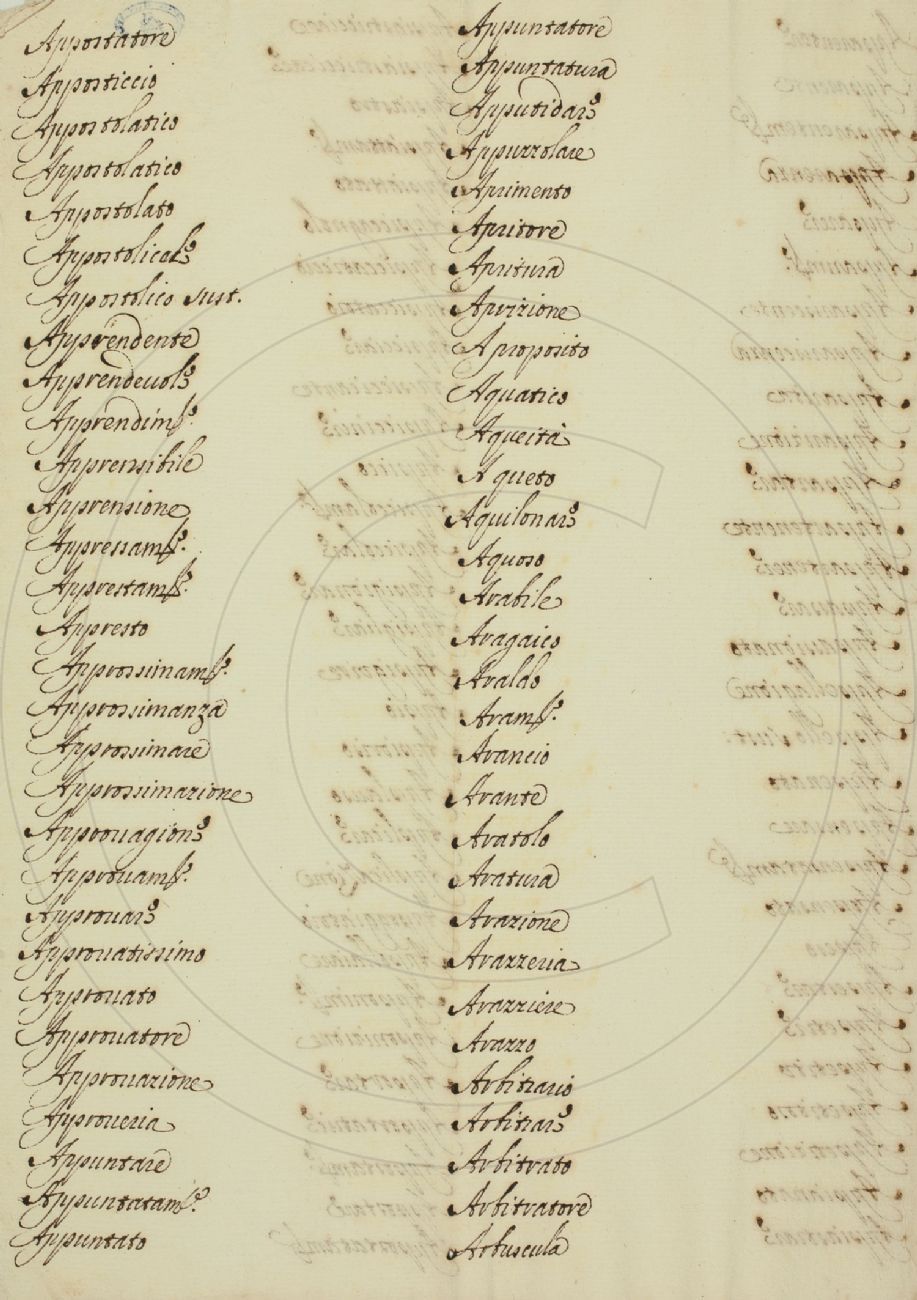 Appostatore
Apposticcio
Appostolatico
Appostolatico
Appostolato
Appostolicale
Appostolico sust.
Apprendente
Apprendeuole
Apprendim.to
Apprensibile
Apprensione
Appressam.to
Apprestam.to
Appresto
Approssimam.to
Approssimanza
Approssimare
Approssimazione
Approuagione
Approuam.to
Approuare
Approuatissimo
Approuato
Approuatore
Approuazione
Approueria
Appuntare
Appuntatam.te
Appuntato
Appuntatore
Appuntatura
Apputidare
Appuzzolare
Aprimento
Apritore
Apritura
Aprizione
Aproposito
Aquatico
Aqueità
Aqueto
Aquilonare
Aquoso
Arabile
Aragaico
Araldo
Aram.to
Arancio
Arante
Aratolo
Aratura
Arazione
Arazzeria
Arazziere
Arazzo
Arbitrario
Arbitrare
Arbitrato
Arbitratore
Arbuscula